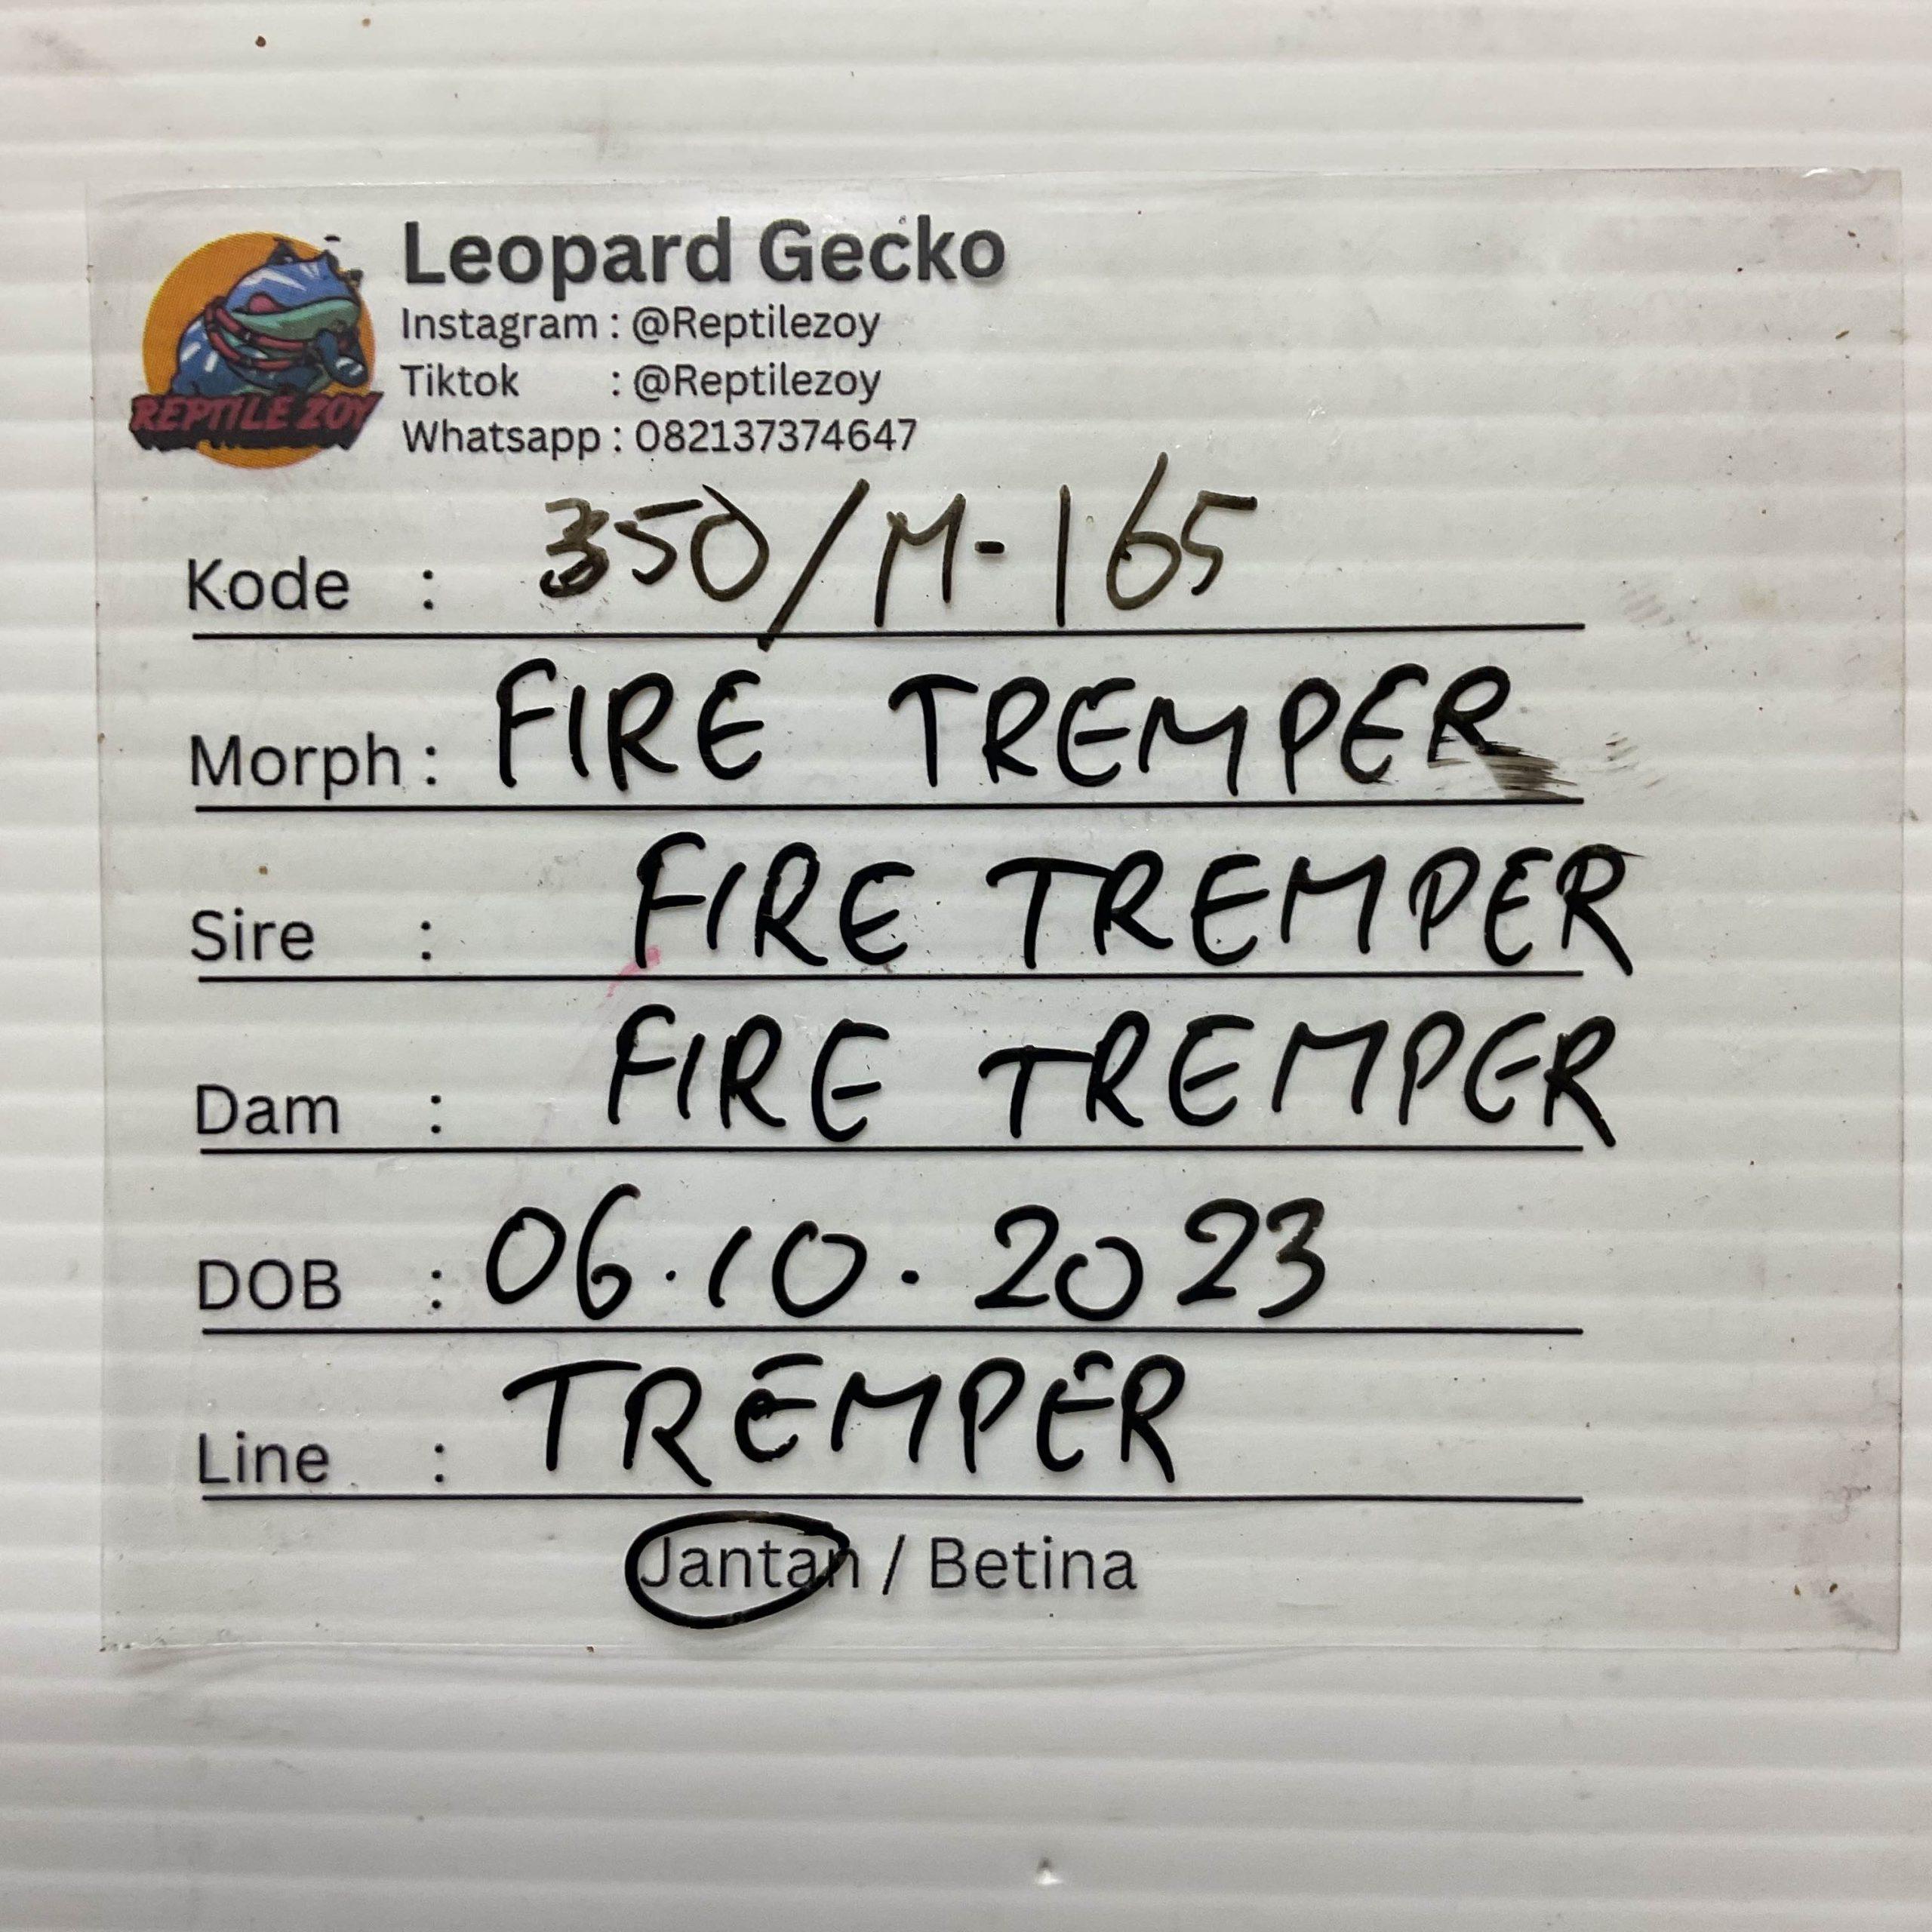 Leopard Gecko
Instagram : @Reptilezoy
Tiktok : @Reptilezoy
Whatsapp : 082137374647
REPTILE ZOY
Kode : 350/M-165
Morph : FIRE TREMPER
Sire : FIRE TREMPER
Dam : FIRE TREMPER
DOB : 06.10.2023
Line : TREMPER
Jantan / Betina